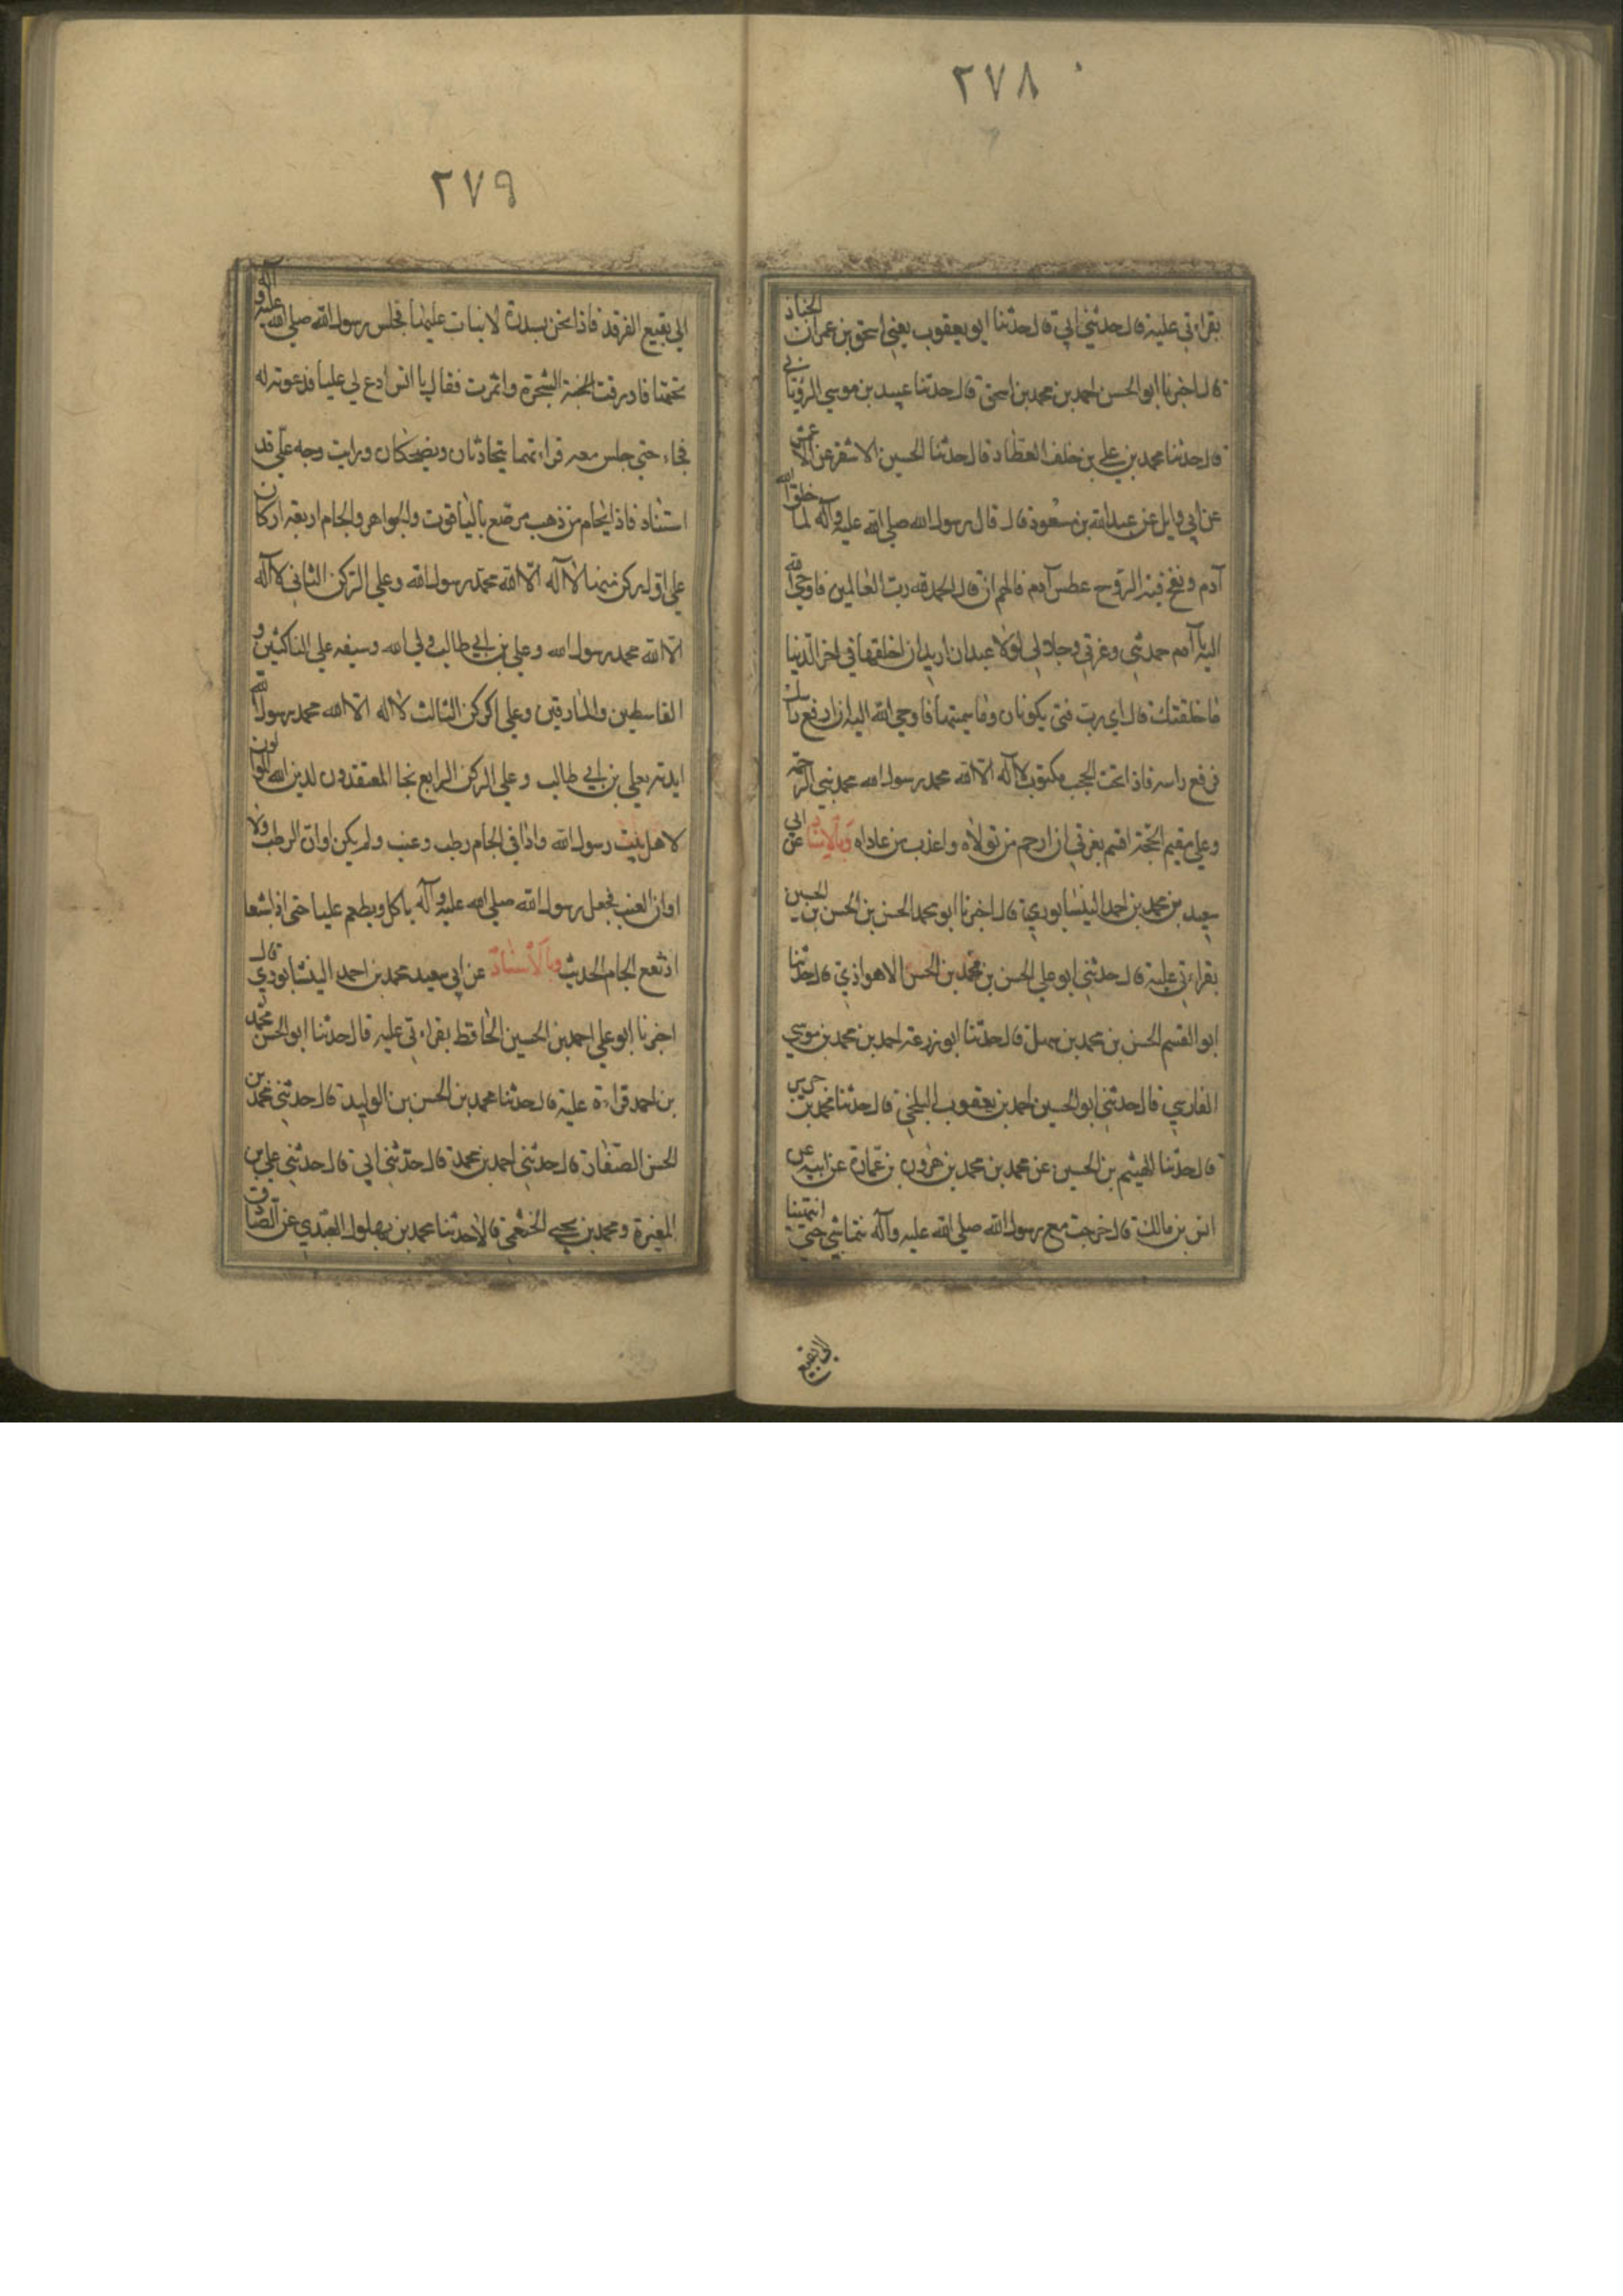 ٢٧٨
بقراءتي عليه قال حدثني ابي قال حدثنا ابو يعقوب يعني اسحق بن عمران الخباز
قال اخبرنا ابو الحسن احمد بن محمد بن اسحق قال حدثنا عبيد بن موسي الروياني
قال حدثنا محمد بن علي بن خلف العطار قال حدثنا الحسين الاشقر عن الاعمش
عن ابي وايل عن عبدالله بن مسعود قال قال رسول الله صلي الله عليه وآله لما خلق الله
آدم ونفخ فيه الروح عطس آدم فالهم ان قال الحمد لله رب العالمين فاوحي الله
اليه يا آدم حمدتني وعزتي وجلالي لولا عبدان اريد ان اخلقهما في اخر الدنيا
ما خلقتك قال اي رب متي يكونان وما سميتهما فاوحي الله اليه ان ارفع راسك
فرفع راسه فاذا تحت الحجب مكتوب لا آله الا الله محمد رسول الله محمد نبي الرحمة
وعلي مقيم الحجة اقسم بعزتي ان ارحم من تولاه واعذب من عاداه وبالاسناد عن ابي
سعيد بن محمد بن احمد النيشابوري قال اخبرنا ابو محمد الحسن بن الحسن بن الحسين
بقراءتي عليه قال حدثني ابو علي الحسن بن محمد بن الحسن الاهوازي قال حدثنا
ابو القسم الحسن بن محمد بن سهل قال حدثنا ابو زرعة احمد بن محمد بن موسي
الفارسي قال حدثني ابو الحسين احمد بن يعقوب البلخي قال حدثنا محمد بن جرير
قال حدثنا الهيثم بن الحسين عن محمد بن محمد بن هرون بن عمارة عن ابيه عن
انس بن مالك قال خرجت مع رسول الله صلي الله عليه وآله نتماشي حتي انتهينا
الي بقيع
٢٧٩
الي بقيع الغرقد فاذا نحن بسدرة لا نبات عليها فجلس رسول الله صلي الله عليه وآله
تحتها فاورقت الشجرة واثمرت فقال يا انس ادع لي عليا فدعوته له
فجاء حتي جلس معه فراءيتهما يتحادثان ويضحكان ورايت وجه علي قد
استنار فاذا بجام من ذهب مرصع بالياقوت والجواهر والجام اربعة اركان
علي اول ركن منها لا آله الا الله محمد رسول الله وعلي الركن الثاني لا آله
الا الله محمد رسول الله وعلي بن ابي طالب ولي الله وسيفه علي الناكثين و
القاسطين والمارقين وعلي الركن الثالث لا اله الا الله محمد رسول الله
ايدته بعلي بن ابي طالب وعلي الركن الرابع نجا المعتقدون لدين الله الموالون
لاهل بيت رسول الله واذا في الجام رطب وعنب ولم يكن اوان الرطب ولا
اوان العنب فجعل رسول الله صلي الله عليه وآله ياكل ويطعم عليا حتي اذا شبعا
ارتفع الجام الحديث وبالاسناد عن ابي سعيد محمد بن احمد النيشابوري قال
اخبرنا ابو علي احمد بن الحسين الحافظ بقراءتي عليه قال حدثنا ابو الحسن محمد
بن احمد قراءة عليه قال حدثنا محمد بن الحسن بن الوليد قال حدثني محمد بن
الحسن الصفار قال حدثني احمد بن محمد قال حدثني ابي قال حدثني علي بن
المغيرة ومحمد بن يحيي الخثعمي قالا حدثنا محمد بن بهلول العبدي عن الصادق